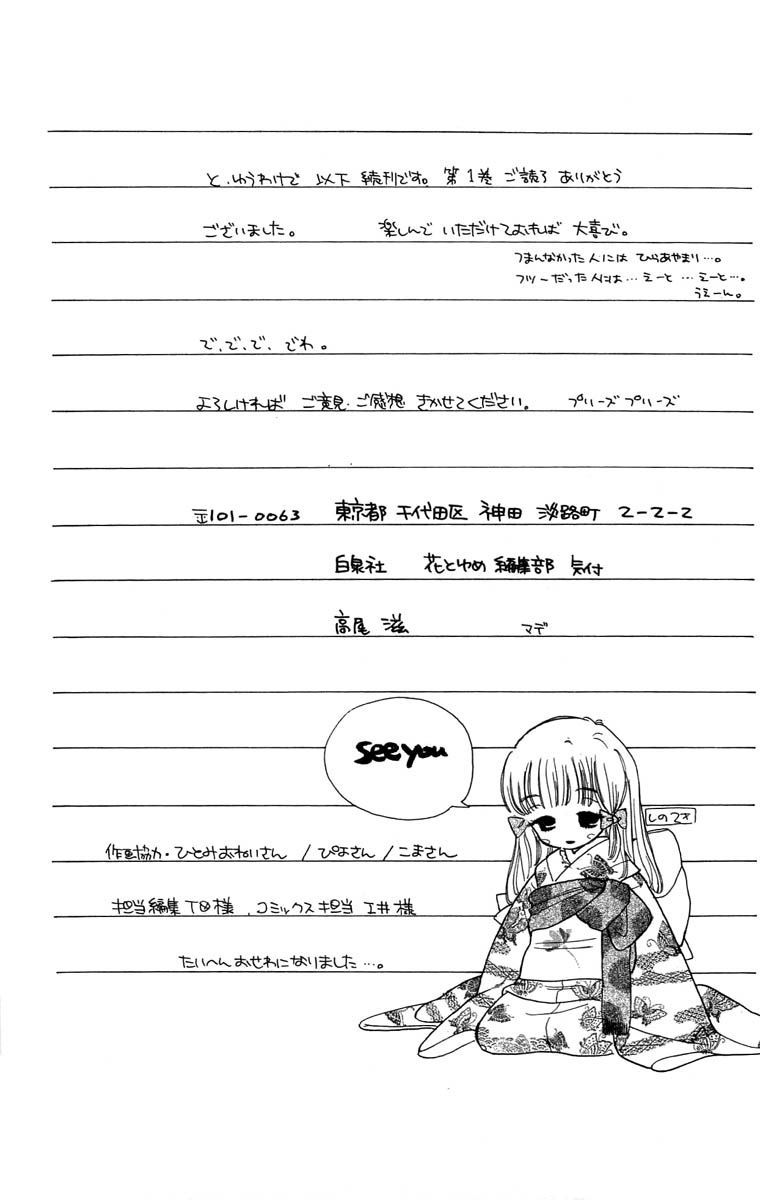 と、ゆうわけで 以下 続刊です。 第1巻 ご読了 ありがとう
ございました。 楽しんで いただけておれば 大喜び。
つまんなかった人には ひらあやまり…。
フツーだった人には… えーと …えーと…。
うえーん。
で、で、で、でわ。
よろしければ ご意見・ご感想 きかせてください。 プリーズ プリーズ
〒101-0063 東京都 千代田区 神田 淡路町 2-2-2
白泉社 花とゆめ 編集部 気付
高尾 滋 マデ
see you
しのてさ
作画協力・ひとみおねいさん /ぴよさん /こまさん
担当編集 T⊗様、コミックス担当 工井 様
たいへん おせわに なりました…。